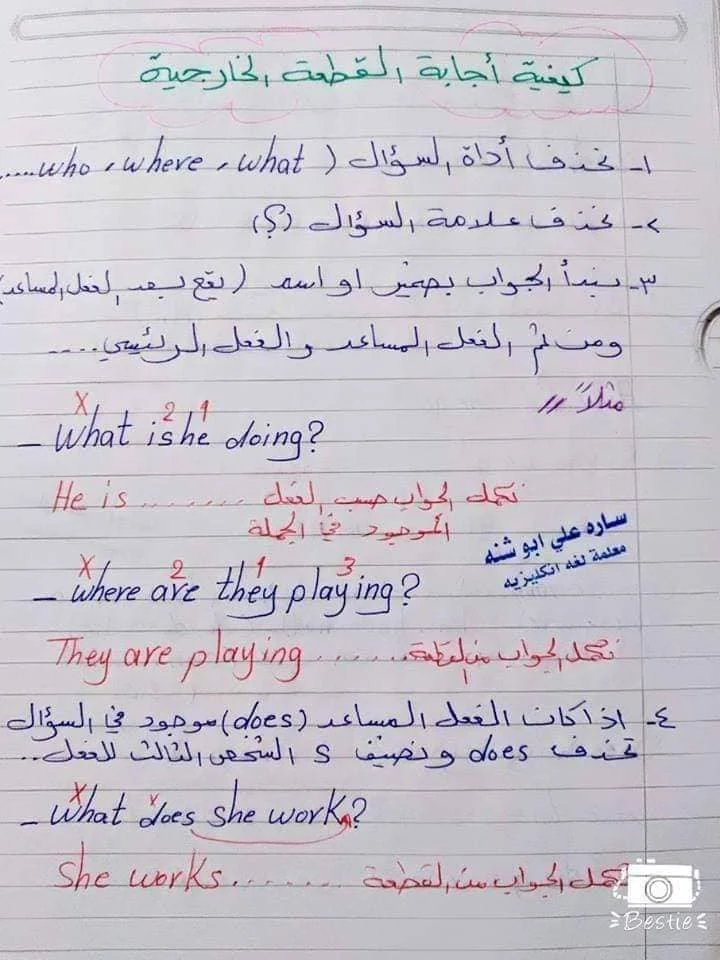 كيفية أجابة القطعة الخارجية
١- نحذف أداة السؤال ( who ، where ، what .....
٢- نحذف علامة السؤال (؟)
٣- نبدأ الجواب بضمير او اسم (يقع بعد الفعل المساعد)
ومن ثم الفعل المساعد والفعل الرئيسي ....
مثلاً //
X 2 1
- What is he doing?
He is ........ نكمل الجواب حسب الفعل
الموجود في الجملة
ساره علي ابو شنه
معلمة لغه انكليزيه
X 2 1 3
- where are they playing?
They are playing ....... نكمل الجواب من القطعة
٤- اذا كان الفعل المساعد (does) موجود في السؤال
نحذف does ونضيف s الشخص الثالث للفعل ..
X x
- What does she work?
She works ....... نكمل الجواب من القطعة
Bestie